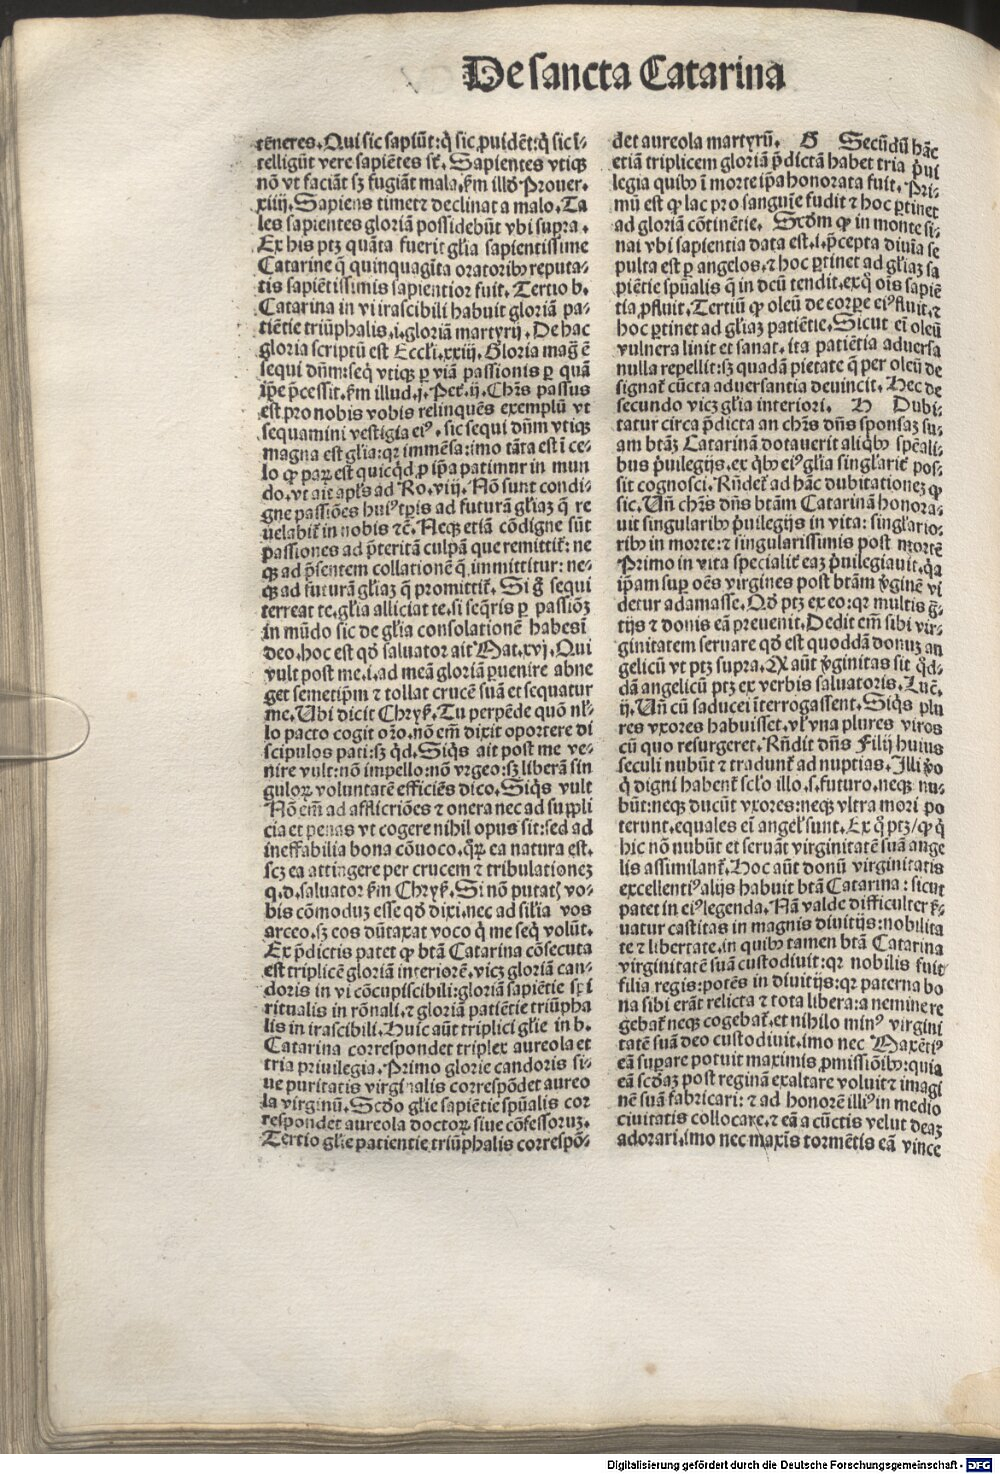 De sancta Catarina
tẽneres. Qui sic sapiũt: q̃ sic ꝓuidẽt: q̃ sic ĩ-
telligũt vere sapiẽtes sũt. Sapientes vtiqꝫ
nõ vt faciãt sꝫ fugiãt mala. ẜm illđ Prouer.
xiiij. Sapiens timet ⁊ declinat a malo. Ta
les sapientes gloriã possidebũt vbi supra.
Ex his ptꝫ quãta fuerit gl̃ia sapientissime
Catarine q̃ quinquagĩta oratoribꝰ reputa-
tis sapiẽtissimis sapientior fuit. Tertio b.
Catarina in vi irascibili habuit gloriã pa-
tiẽtie triũphalis .i. gloriã martyrij. De hac
gloria scriptũ est Eccľi. xxiij. Gloria mag̃ ẽ
sequi dñm: seq̃ vtiqꝫ ꝑ viã passionis ꝑ quã
ip̃e p̃cessit. ẜm illud .j. Pet̃. ij. Chr̃s passus
est pro nobis vobis relinquẽs exemplũ vt
sequamini vestigia eiꝰ. sic sequi dñm vtiqꝫ
magna est gl̃ia: qꝛ immẽsa: imo tãta est ĩ ce-
lo ꝙ paꝝ est quicq̃d ꝓ ip̃a patimur in mun
do. vt ait apľs ad Ro. viij. Nõ sunt condi-
gne passiões huiꝰ tꝑis ad futurã gl̃iaꝫ q̃ re
uelabit̃ in nobis ⁊c̃. Neqꝫ etiã cõdigne sũt
passiones ad p̃teritã culpã que remittit̃: ne
qꝫ ad p̃sentem collationẽ q̃ immittitur: ne-
qꝫ ad futurã gl̃iaꝫ q̃ promittit̃. Si g̃ sequi
terreat te. gl̃ia alliciat te. si seq̃ris ꝑ passiõꝫ
in mũdo sic de gl̃ia consolationẽ habes ĩ
deo. hoc est qđ saluator ait Mat. xvj. Qui
vult post me .i. ad meã gloriã ꝑuenire abne
get semetip̃m ⁊ tollat crucẽ suã et sequatur
me. Ubi dicit Chryẜ. Tu perpẽde quõ nľ-
lo pacto cogit or̃o. nõ em̃ dixit oportere di
scipulos pati: sꝫ q̃d. Siq̃s ait post me ve-
nire vult: nõ impello: nõ vrgeo: sꝫ liberã sin
guloꝝ voluntatẽ efficiẽs dico. Siq̃s vult
Nõ em̃ ad afflictiões ⁊ onera nec ad suppli
cia et penas vt cogere nihil opus sit: sed ad
ineffabilia bona cõuoco. q̃ꝝ ea natura est.
scꝫ ea attingere per crucem ⁊ tribulationeꝫ
q. d. saluator ẜm Chryẜ. Si nõ putatꝭ vo-
bis cõmoduꝫ esse qđ dixi. nec ad sil̃ia vos
arceo. sꝫ eos dũtaxat voco q̃ me seq̃ volũt.
Ex p̃dictis patet ꝙ btã Catarina cõsecuta
est triplicẽ gloriã interiorẽ. vicꝫ gloriã can-
doris in vi cõcupiscibili: gloriã sapiẽtie spi
ritualis in rõnali. ⁊ gloriã patiẽtie triũpha
lis in irascibili. Huic aũt triplici gľie in b.
Catarina correspondet triplex aureola et
tria priuilegia. Primo glorie candoris si-
ue puritatis virginalis correspõdet aureo
la virginũ. Scđo gľie sapiẽtie spũalis cor
respondet aureola doctoꝝ siue cõfessoruꝫ.
Tertio gľie patientie triũphalis correspõ-
det aureola martyrũ. G Secũdũ hãc
etiã triplicem gloriã p̃dictã habet tria p̃ui
legia quibꝰ ĩ morte ip̃a honorata fuit. Pri-
mũ est ꝙ lac pro sanguĩe fudit ⁊ hoc ꝑtinet
ad gloriã cõtinẽtie. Scđm ꝙ in monte si-
nai vbi sapientia data est .i. p̃cepta diuĩa se
pulta est ꝑ angelos. ⁊ hoc ꝑtinet ad gl̃iaꝫ sa
piẽtie spũalis q̃ in deũ tendit. ex q̃ oĩs sapiẽ
tia ꝓfluit. Tertiũ ꝙ oleũ de corꝑe eiꝰ fluit. ⁊
hoc ꝑtinet ad gl̃iaꝫ patiẽtie. Sicut ei̇̃ oleũ
vulnera linit et sanat. ita patiẽtia aduersa
nulla repellit: sꝫ quadã pietate q̃ per oleũ de
signat̃ cũcta aduersantia deuincit. Hec de
secundo vicꝫ gl̃ia interiori. H Dubi-
tatur circa p̃dicta an chr̃s dñs sponsaꝫ su-
am btãꝫ Catarinã dotauerit aliq̃bꝰ spẽali-
bus p̃uilegijs. ex q̃bꝰ eiꝰ gl̃ia singľarit̃ pos-
sit cognosci. Rñdet̃ ad hãc dubitationeꝫ ꝙ
sic. Uñ chr̃s dñs btãm Catarinã honora-
uit singularibꝰ p̃uilegijs in vita: singľario-
ribꝰ in morte: ⁊ singularissimis post mortẽ
Primo in vita specialit̃ eaꝫ p̃uilegiauit. q̃a
ip̃am suꝑ oẽs virgines post btãm v̓ginẽ vi
detur adamasse. Qđ ptꝫ ex eo: qꝛ multis g̃-
tijs ⁊ donis eã preuenit. Dedit em̃ sibi vir-
ginitatem seruare qđ est quoddã donuꝫ an
gelicũ vt ptꝫ supra. Q̃ aũt v̓ginitas sit q̃d-
dã angelicũ ptꝫ ex verbis saluatoris. Luc̃.
ij. Uñ cũ saducei ĩterrogassent. Siq̃s plu
res vxores habuisset. vľ vna plures viros
cũ quo resurgeret. Rñdit dñs Filij huius
seculi nubũt ⁊ tradunt̃ ad nuptias. Illi v̓o
q̃ digni habent̃ scľo illo .s. futuro. neqꝫ nu-
bũt: neqꝫ ducũt vxores: neqꝫ vltra mori po
terunt. equales ei̇̃ angeľ sunt. Ex q̃ ptꝫ / ꝙ q̃
hic nõ nubũt et seruãt virginitatẽ suã ange
lis assimilant̃. Hoc aũt donũ virginitatis
excellentiꝰ alijs habuit btã Catarina: sicut
patet in eiꝰ legenda. Nã valde difficulter ẜ-
uatur castitas in magnis diuitijs: nobilita
te ⁊ libertate. in quibꝰ tamen btã Catarina
virginitatẽ suã custodiuit: qꝛ nobilis fuit
filia regis: potẽs in diuitijs: qꝛ paterna bo
na sibi erãt relicta ⁊ tota libera: a nemine re
gebat̃ neqꝫ cogebat̃. et nihilo minꝰ virgini
tatẽ suã deo custodiuit. imo nec Maxẽtiꝰ
eã suꝑare potuit maximis ꝓmissiõibꝰ: quia
eã scđaꝫ post reginã exaltare voluit ⁊ imagi
nẽ suã fabricari: ⁊ ad honorẽ illiꝰ in medio
ciuitatis collocare. ⁊ eã a cũctis velut deaꝫ
adorari. imo nec maxĩs tormẽtis eã vince
Digitalisierung gefördert durch die Deutsche Forschungsgemeinschaft - DFG